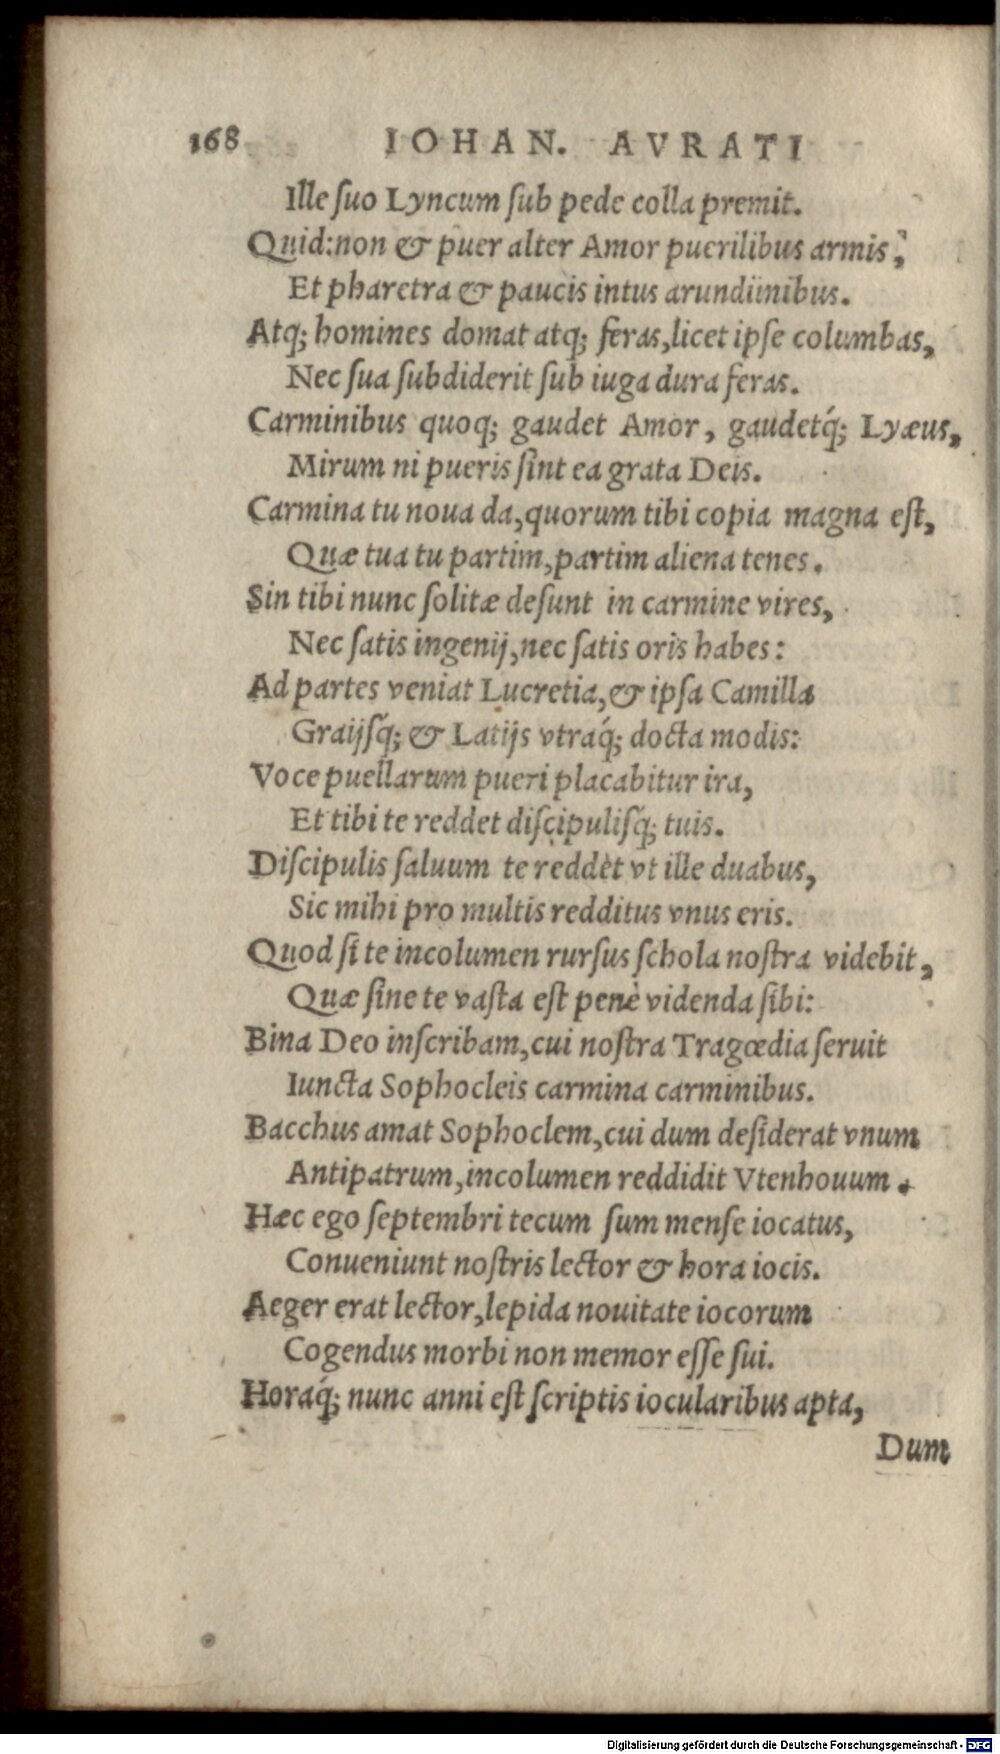 168 IOHAN. AVRATI
Ille ſuo Lyncum ſub pede colla premit.
Quid: non & puer alter Amor puerilibus armis,
Et pharetra & paucis intus arundinibus.
Atq; homines domat atq; feras, licet ipſe columbas,
Nec ſua ſubdiderit ſub iuga dura feras.
Carminibus quoq; gaudet Amor, gaudetq́; Lyæus,
Mirum ni pueris ſint ea grata Deis.
Carmina tu noua da, quorum tibi copia magna eſt,
Quæ tua tu partim, partim aliena tenes.
Sin tibi nunc ſolitæ deſunt in carmine vires,
Nec ſatis ingenij, nec ſatis oris habes:
Ad partes veniat Lucretia, & ipſa Camilla
Graijſq́; & Latijs vtraq́; docta modis:
Voce puellarum pueri placabitur ira,
Et tibi te reddet diſcipuliſq́; tuis.
Diſcipulis ſaluum te reddèt vt ille duabus,
Sic mihi pro multis redditus vnus eris.
Quod ſi te incolumen rurſus ſchola noſtra videbit,
Quæ ſine te vaſta eſt penè videnda ſibi:
Bina Deo inſcribam, cui noſtra Tragœdia ſeruit
Iuncta Sophocleis carmina carminibus.
Bacchus amat Sophoclem, cui dum deſiderat vnum
Antipatrum, incolumen reddidit Vtenhouum.
Hæc ego ſeptembri tecum ſum menſe iocatus,
Conueniunt noſtris lector & hora iocis.
Aeger erat lector, lepida nouitate iocorum
Cogendus morbi non memor eſſe ſui.
Horaq́; nunc anni eſt ſcriptis iocularibus apta,
Dum
Digitalisierung gefördert durch die Deutsche Forschungsgemeinschaft - DFG